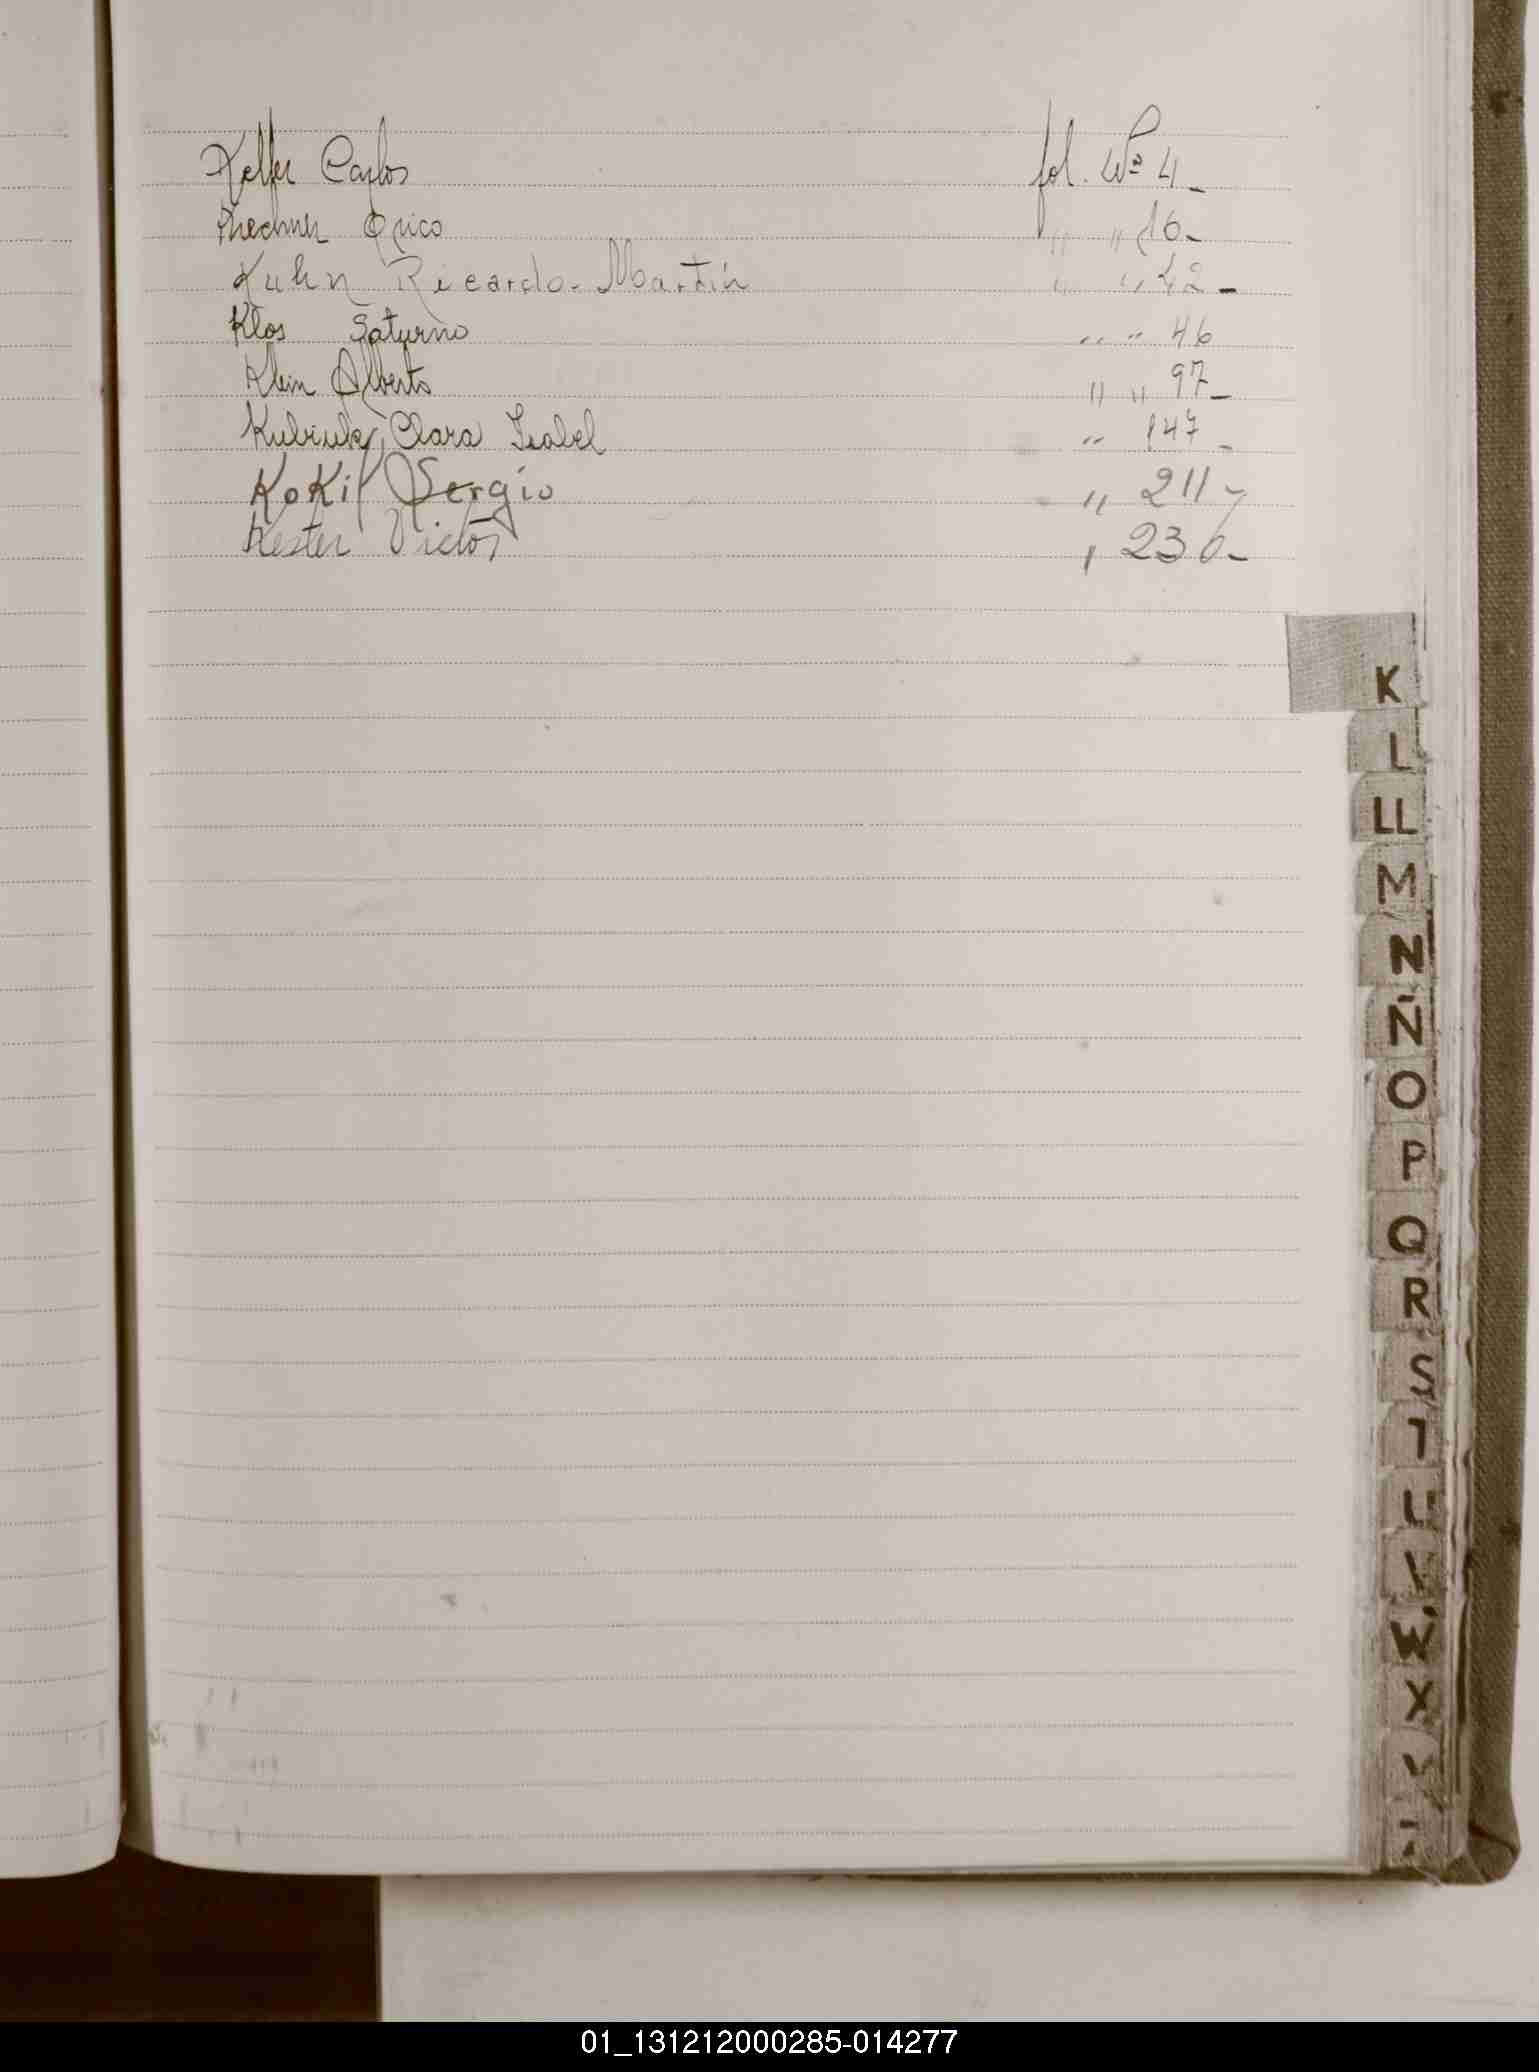 Keller Carlos fol. Nº 4_
Erico " " 16_
Kuhn Ricardo Martín " " 42_
Klos Saturno " " 46
Klein Alberto " " 97_
Clara Isabel " 147_
Kokil Sergio " 211_
Kester Victor " 236_
K
L
LL
M
N
Ñ
O
P
Q
R
S
T
U
V
W
X
01_131212000285-014277